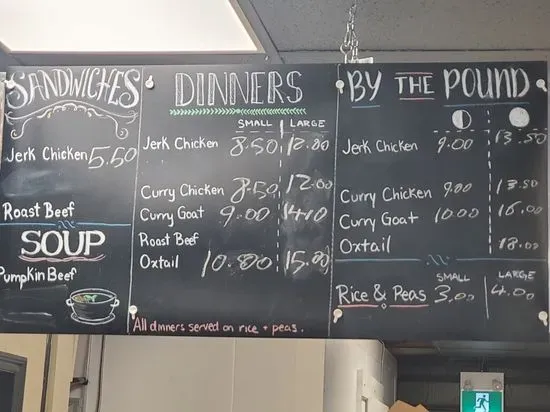 SANDWICHES
Jerk Chicken 5.50
Roast Beef
SOUP
Pumpkin Beef
DINNERS
SMALL LARGE
Jerk Chicken 8.50 12.00
Curry Chicken 8.50 12.00
Curry Goat 9.00
Roast Beef
Oxtail 10.00 15.00
All dinners served on rice + peas.
BY THE POUND
Jerk Chicken 9.00 13.50
Curry Chicken 9.00 13.50
Curry Goat 10.00 16.00
Oxtail 18.00
SMALL LARGE
Rice & Peas 3.00 4.00